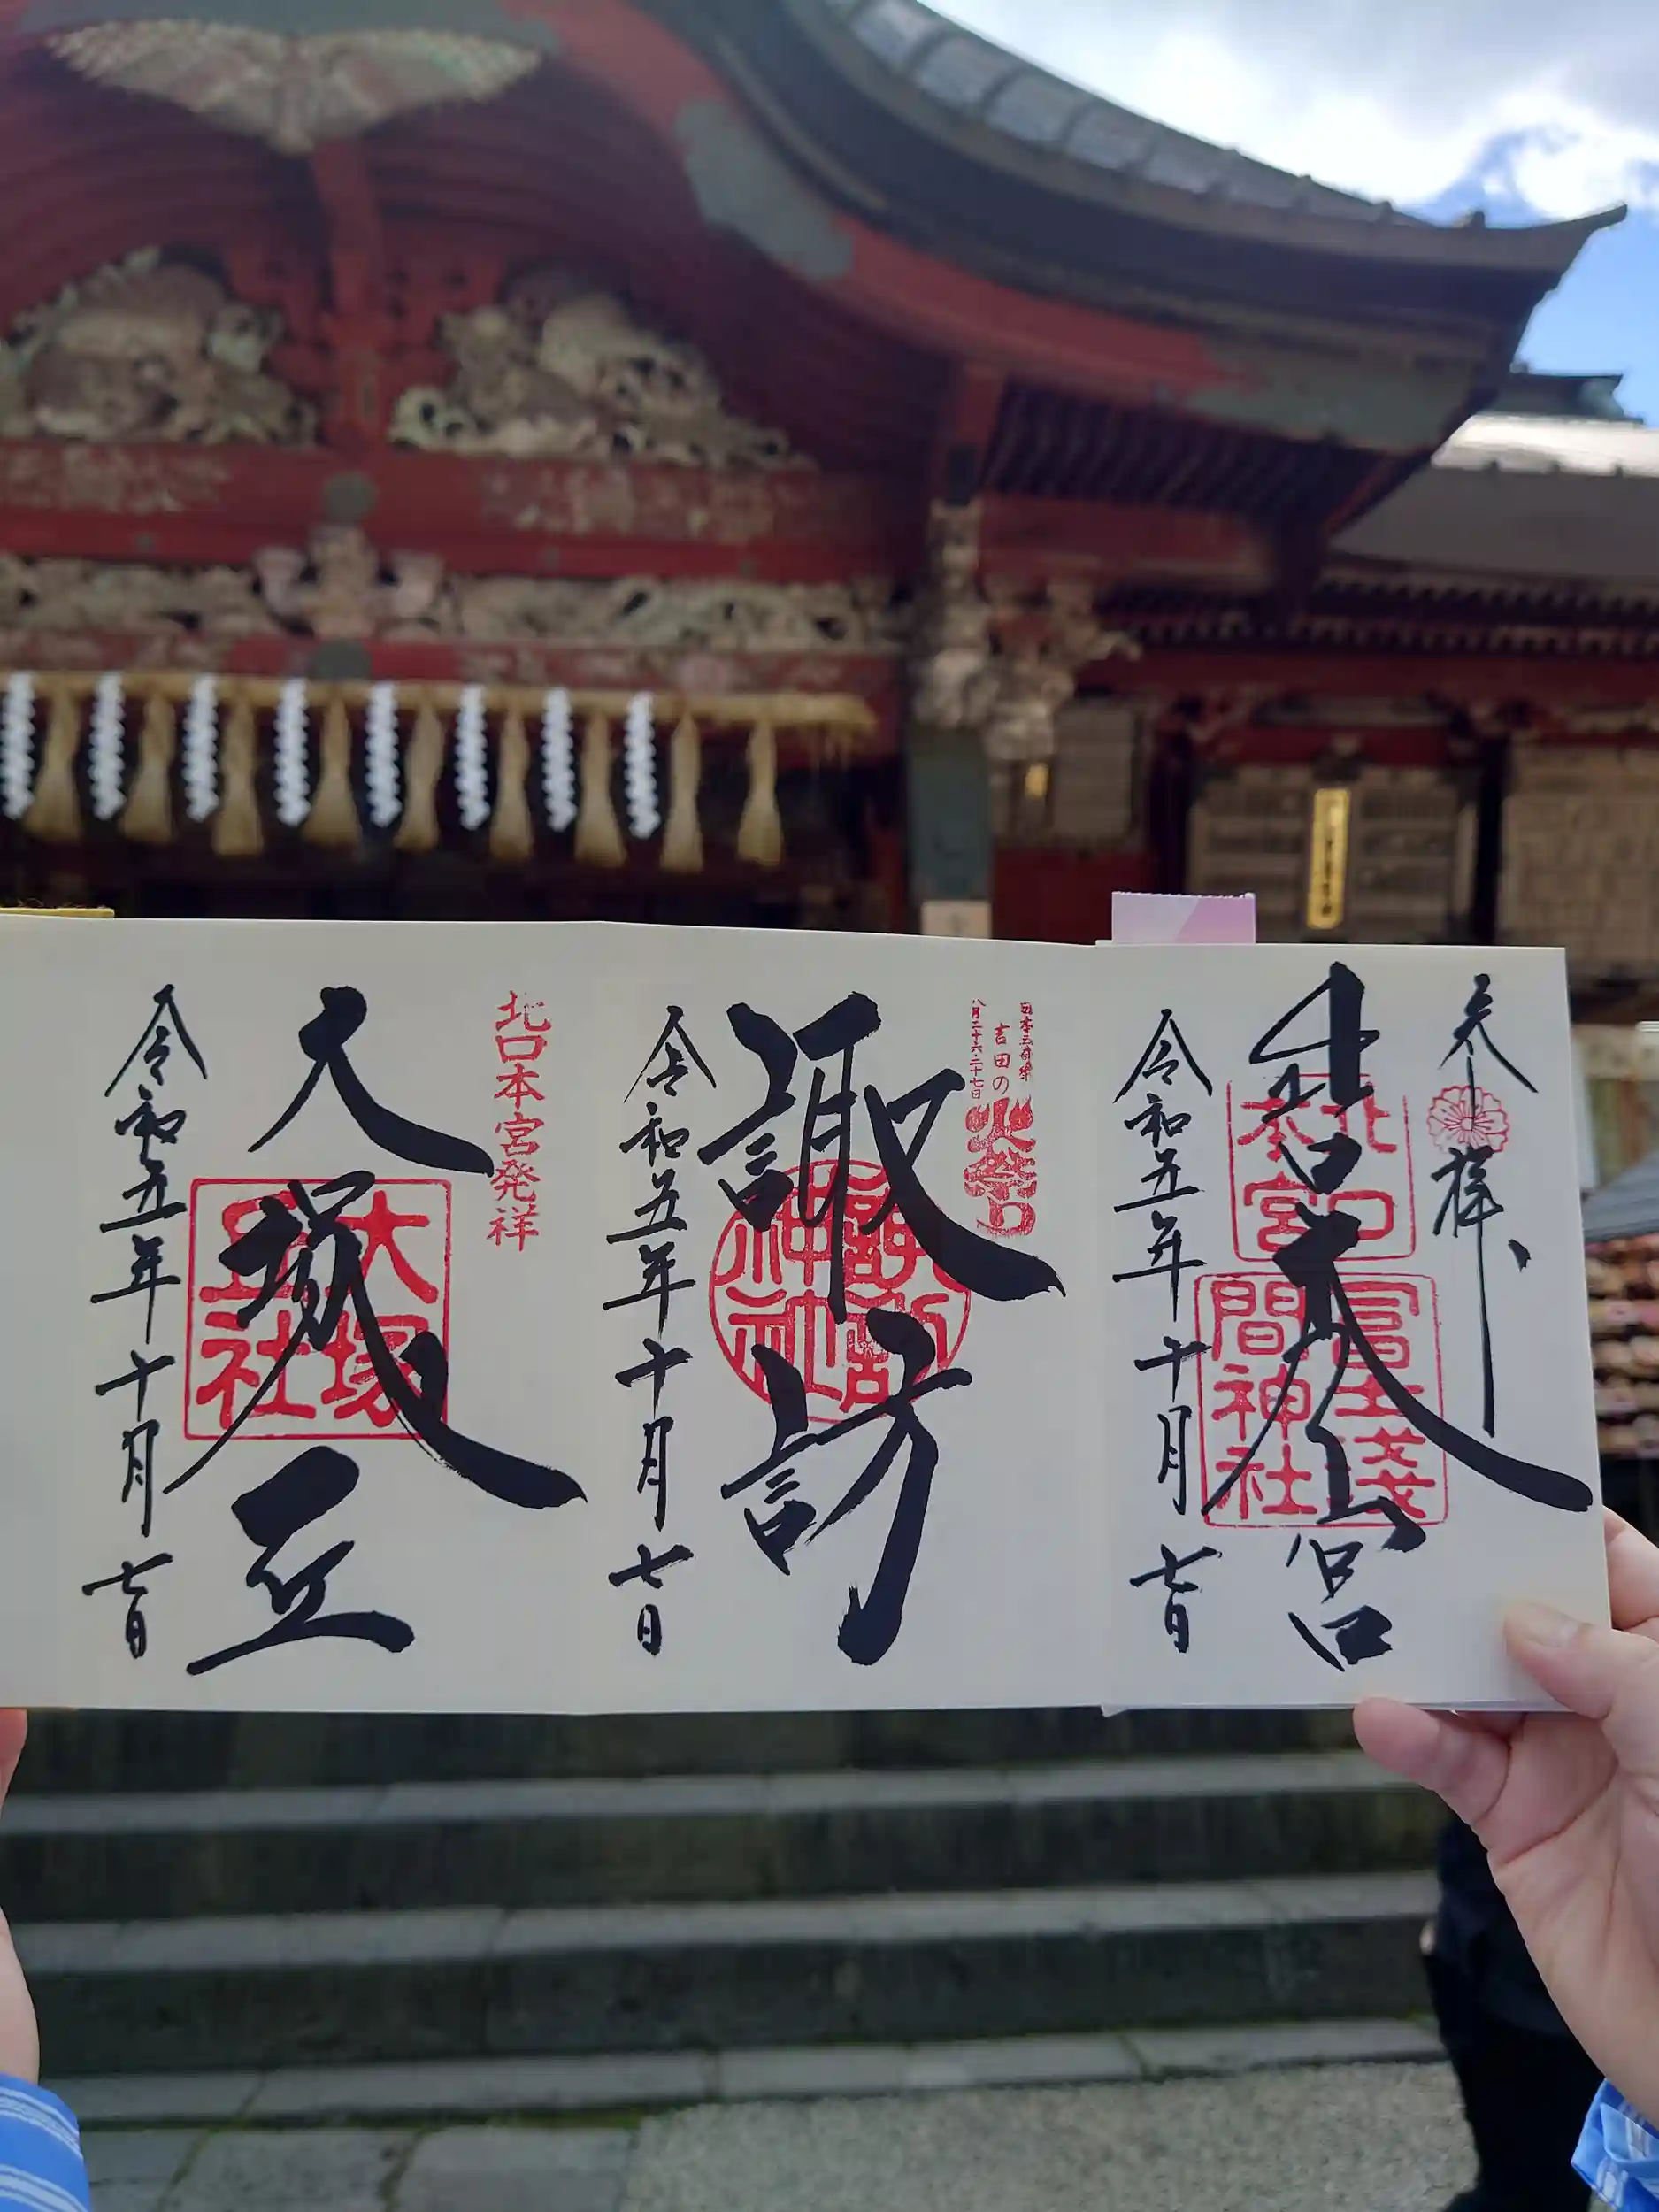 奉拝
北口本宮
冨士浅間神社
北口本宮
令和五年十月七日
日本三奇祭
吉田の火祭り
八月二十六・二十七日
諏訪
諏訪神社
令和五年十月七日
北口本宮発祥
大塚丘
大塚丘社
令和五年十月七日